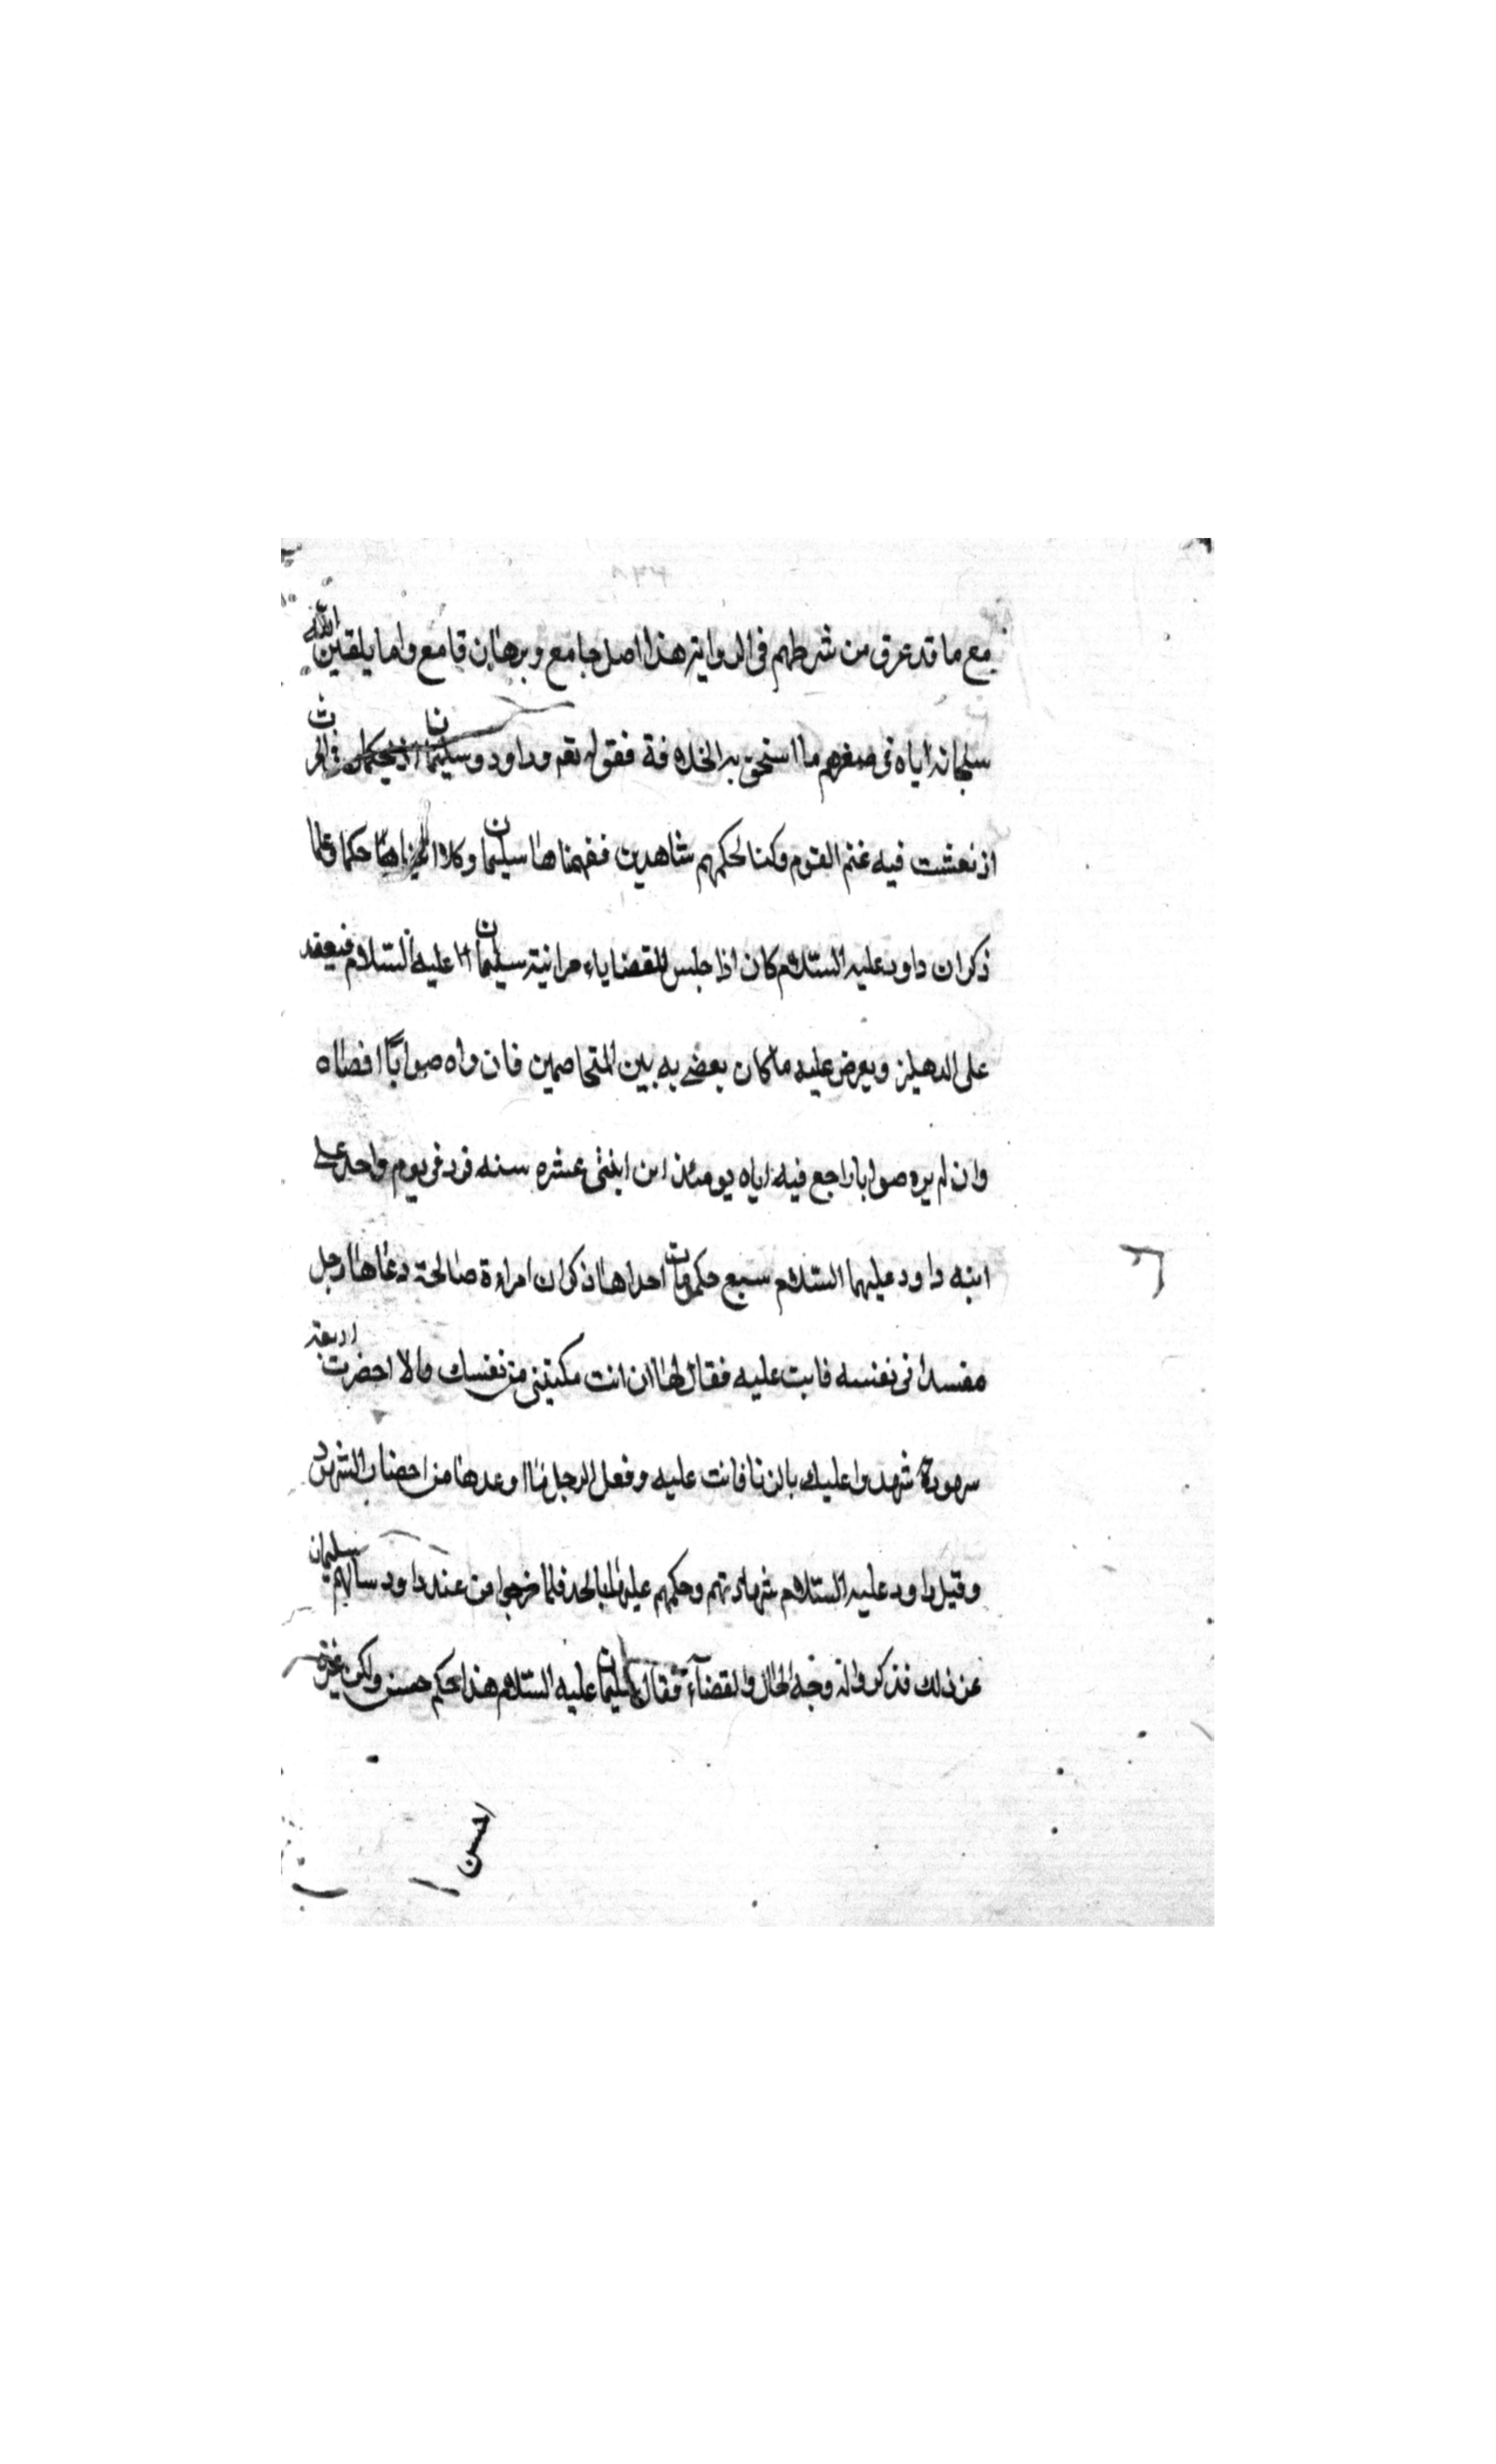 مع ما قد عرق من شرطهم فى الروايتر هذا اصل جامع وبرهان قامع واما يلقين الله
سلجانه اياه فى صغرهم ما استحق به الخلافة فقوله تعم وداود وسليمان اذ يحكمان فى الحرث
اذ نعشت فيه غنم القوم وكنا لحكمهم شاهدين ففهمنا ها سليمان وكلا اتيناه حكما وعلما
ذكر ان داود عليه السلام كان اذا جلس للقضايا سليمان عليه السلام فيعقد
على الدهيلز ويعرض عليه ما كان بعضے به بين المتخاصمين فان راه صوابًا افضاه
وان لم يره صوابا راجع فيه اياه يومئذ ابن اينثى عشره سنه فرد فى يوم واحد على
ابنه داود عليهما السلام سبع حكومات احداها ذكر ان امراءة صالحة دعاها رجل
مفسدا فى نفسه فابت عليه فقال لها ان انت مكنيتنى من نفسك والا احضرت اربعة
سهودة شهدوا عليك بالزنا فانت عليه وفعل الرجل ما اوعدها من احضار الشهود
وقيل داود عليه السلام شهادتهم وحكمهم عليها بالحد فلما خرجوا من عند داود سالهم سليمان
عن ذلك فذكروا له وجه الحال والقضآء فقال سليمان عليه السلام هذا حكم حسن ولكن غيره
احسن